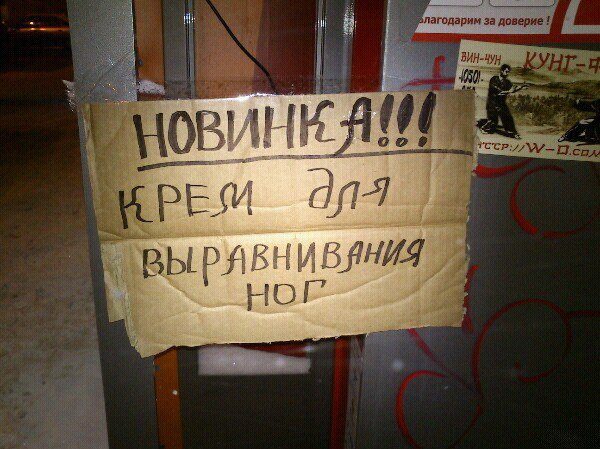 благодарим за доверие!
ВИН-ЧУН КУНГ-Ф
НОВИНКА!!!
КРЕМ ДЛЯ
ВЫРАВНИВАНИЯ
НОГ